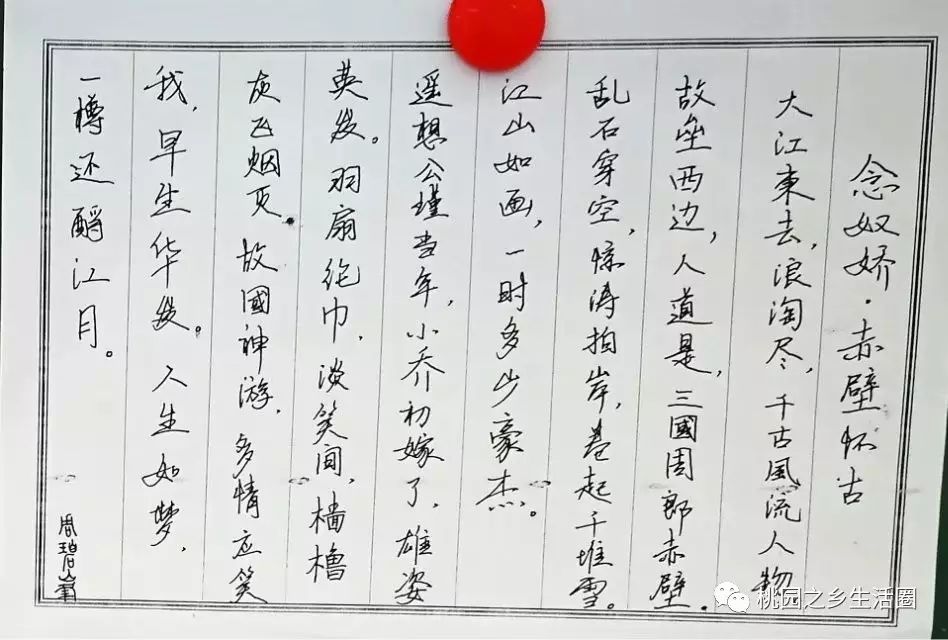 念奴娇·赤壁怀古
大江東去，浪淘尽，千古风流人物
故垒西边，人道是，三國周郎赤壁.
乱石穿空，惊涛拍岸，卷起千堆雪。
江山如画，一时多少豪杰。
遥想公瑾当年，小乔初嫁了，雄姿
英发。羽扇纶巾，淡笑间，樯橹
灰飞烟灭。故國神游，多情应笑
我，早生华发。人生如梦，
一樽还酹江月。
周碧峯
桃园之乡生活圈